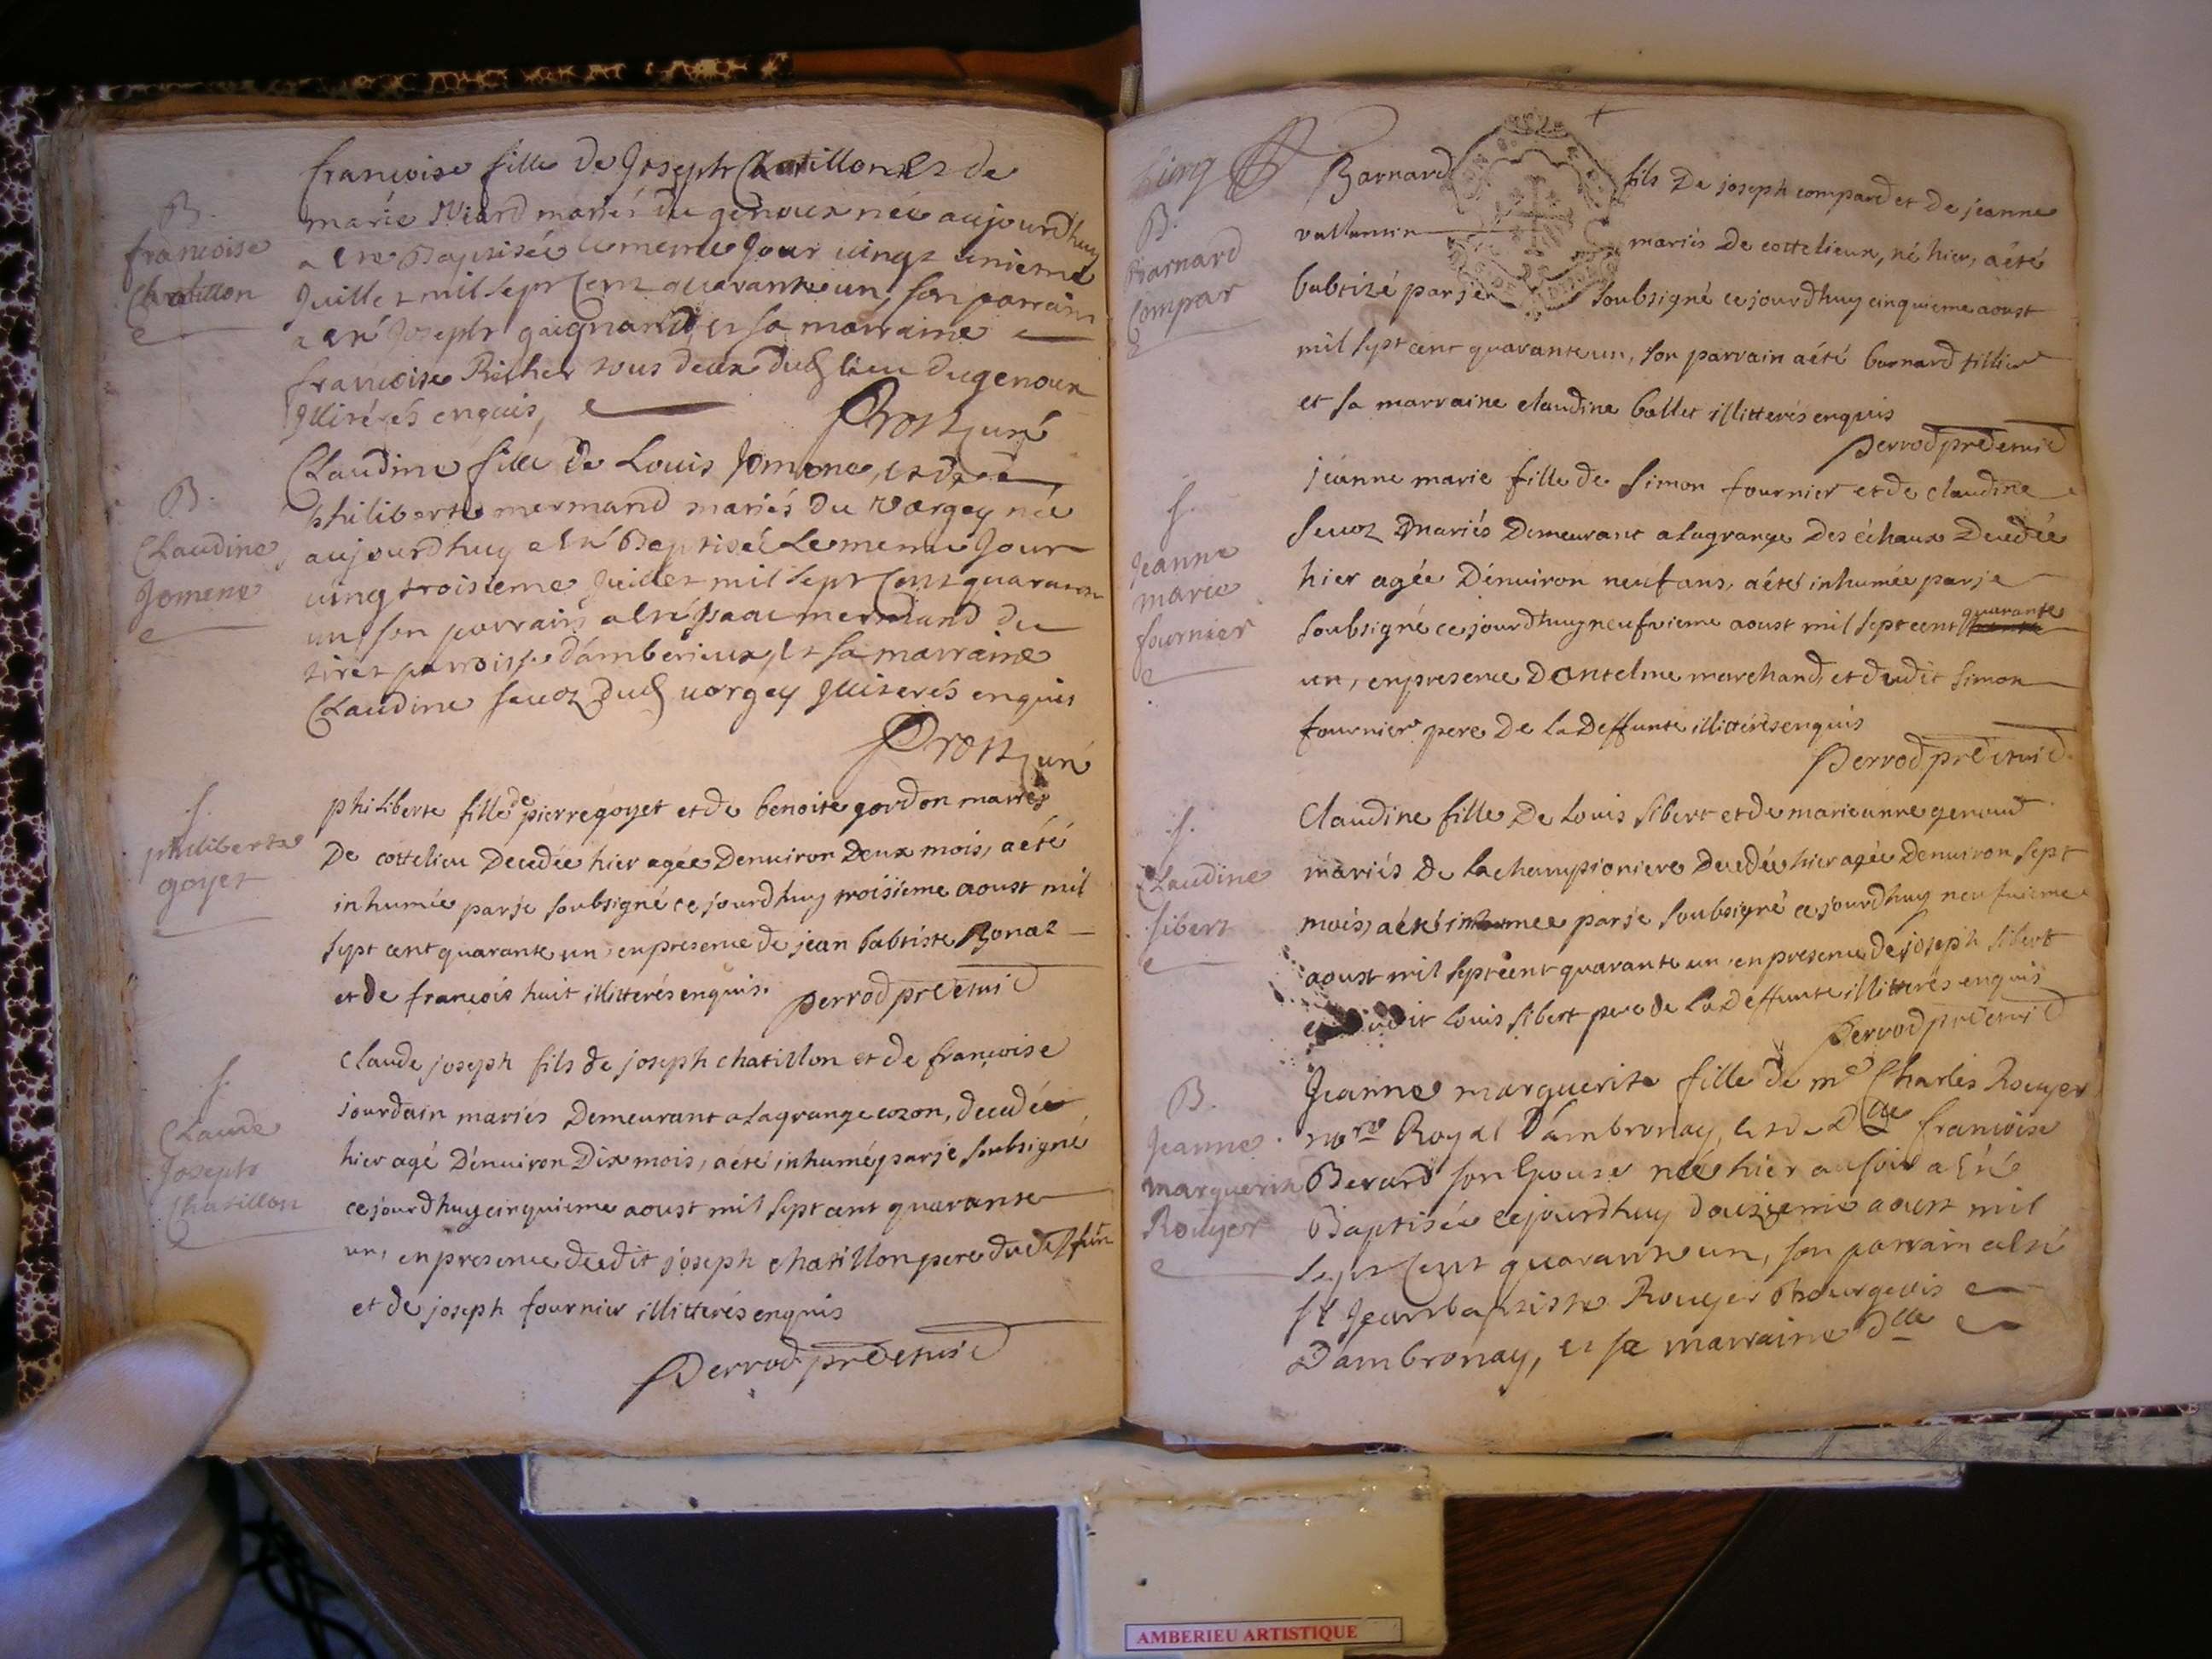 B.
francoise
Chatillon
francoise fille de Joseph Chatillon Et de
marie Niard mariés du genoux née aujourdhuy
a Eté Baptisée le meme Jour vingt unieme
Juillet mil sept Cent quarante un, son parrain
a eté Joseph gaignard, et sa marraine
francoise Richer tous deux dud lieu dugenoux
Illiterés enquis,
Prost curé
B.
Claudine
Jomene
Claudine fille de Louis Jomene, et de
philiberte mermand mariés du vorgey née
aujourdhuy a Eté Baptisée Le meme Jour
vingtroisieme Juillet mil sept Cent quarante
un, son parrain a eté Isaac mermand du
tiret parroisse d'amberieux, Et sa marraine
Claudine sevoz dud vorgey Illiterés enquis
Prost curé
S.
philiberte
goyet
philiberte fille de pierre goyet et de benoite gordon mariés
De cottelieu Decedée hier agée Denuiron Deux mois, a été
inhumée par je soubsigné ce jourdhuy troisieme aoust mil
sept cent quarante un, en presence de jean babtiste Bonaz
et de francois huit illitterés enquis. perrod pre et vic
S.
Claude
Joseph
Chatillon
Claude joseph fils de joseph chatillon et de francoise
jourdain mariés Demeurant a lagrange cozon, decedée
hier agé Dénuiron Dix mois, a été inhumé par je soubsigné
ce jourdhuy cinquieme aoust mil sept cent quarante
un, en presence dudit joseph chatillon pere du deffun
et de joseph fournier illitterés enquis
Perrod pre et vic
B.
Barnard
Compar
Barnard fils De joseph compard et de jeanne
vallansin mariés De cottelieux, né hier, a été
babtizé par je soubsigné ce jourdhuy cinquieme aoust
mil sept cent quarante un, son parrain a été barnard tillier
et sa marraine claudine ballet illitterés enquis
perrod pre et vic
S.
Jeanne
marie
fournier
jeanne marie fille de Simon fournier et de claudine
sevoz mariés Demeurant a lagrange Des échaux Decedée
hier agée Dénuiron neuf ans, a été inhumée par je
soubsigné ce jourdhuy neufuieme aoust mil sept cent quarante
un, en presence Dantelme marchand, et dudit simon
fournier pere De la Deffunte illitterés enquis
Perrod pre et vic
S.
Claudine
sibert
Claudine fille De Louis sibert et de marieanne genoud
mariés De lachampioniere Decedée hier agée Denuiron sept
mois, a été inhumee par je soubsigné ce jourdhuy neufuieme
aoust mil sept cent quarante un, en presence de joseph sibert
et dudit Louis sibert pere de la Deffunte illitterés enquis
Perrod pre et vic
B.
Jeanne
marguerite
Rouyer
Jeanne marguerite fille de me Charles Rouyer
nore Royal Dambronay, et de Dlle francoise
Berard son Epouse née hier au soir a Eté
Baptisée cejourdhuy douzieme aoust mil
sept Cent quarante un, son parrain a eté
sr Jeanbaptiste Rouyer Bourgeois
Dambronay, et sa marraine dlle
AMBERIEU ARTISTIQUE